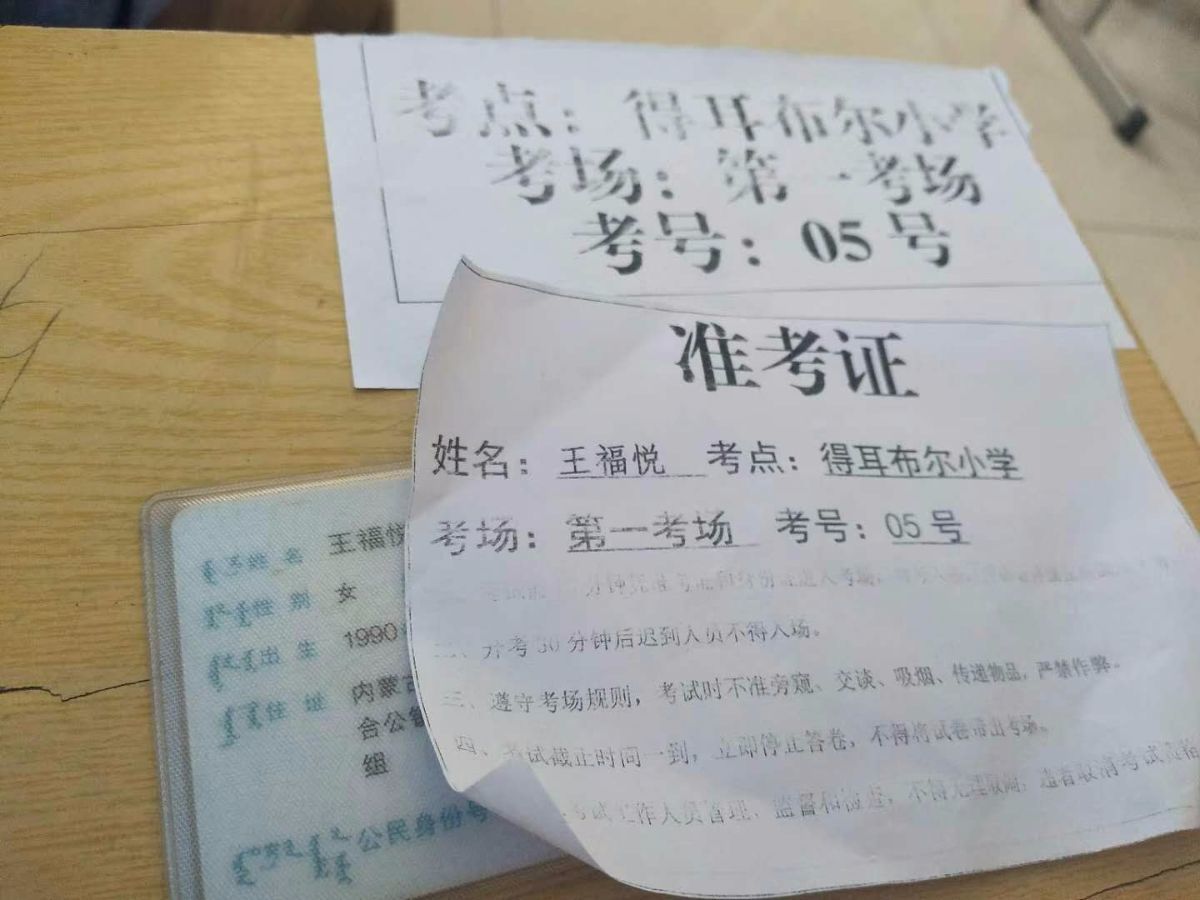 考点：得耳布尔小学
考场：第一考场
考号：05号
准考证
姓名：王福悦 考点：得耳布尔小学
考场：第一考场 考号：05号
分钟凭准考证和身份证进入考场，
二、开考30分钟后迟到人员不得入场。
三、遵守考场规则，考试时不准旁窥、交谈、吸烟、传递物品，严禁作弊。
四、考试截止时间一到，立即停止答卷，不得将试卷带出考场。
考试工作人员管理、监督和检查，不得无理取闹，违者取消考试资格
姓名 王福悦
性别 女
出生 1990
住址 内蒙古
合公
组
公民身份号